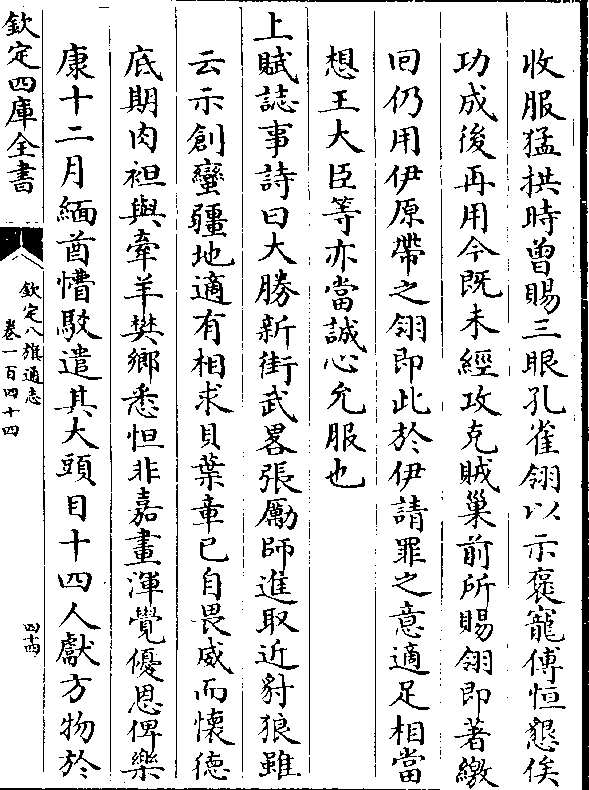 收服猛拱時曽賜三眼孔雀翎以示褒寵傅恒懇俟
功成後再用今既未經攻克賊巢前所賜翎即著繳
回仍用伊原帶之翎即此於伊請罪之意適足相當
想王大臣等亦當誠心允服也
上賦誌事詩曰大勝新街武畧張勵師進取近豺狼雖
云示創蠻疆地適有相求貝葉章已自畏威而懷德
底期肉袒與牽羊樊鄉悉怛非嘉畫渾覺優恩俾樂
康十二月緬酋懵駮遣其大頭目十四人獻方物於
欽定四庫全書
欽定八旗通志
卷一百四十四
四十四